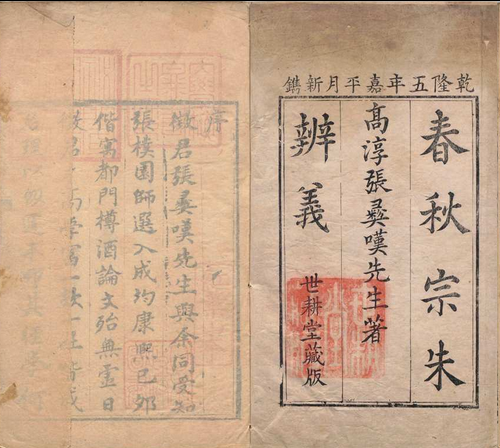 乾隆五年嘉平月新鐫
春秋宗朱
髙淳張彝嘆先生著
辨義
世耕堂藏版
序
徵君張彝嘆先生與余同受知
張樸園師選入成均康熙己卯
偕寓都門樽酒論文殆無虛日